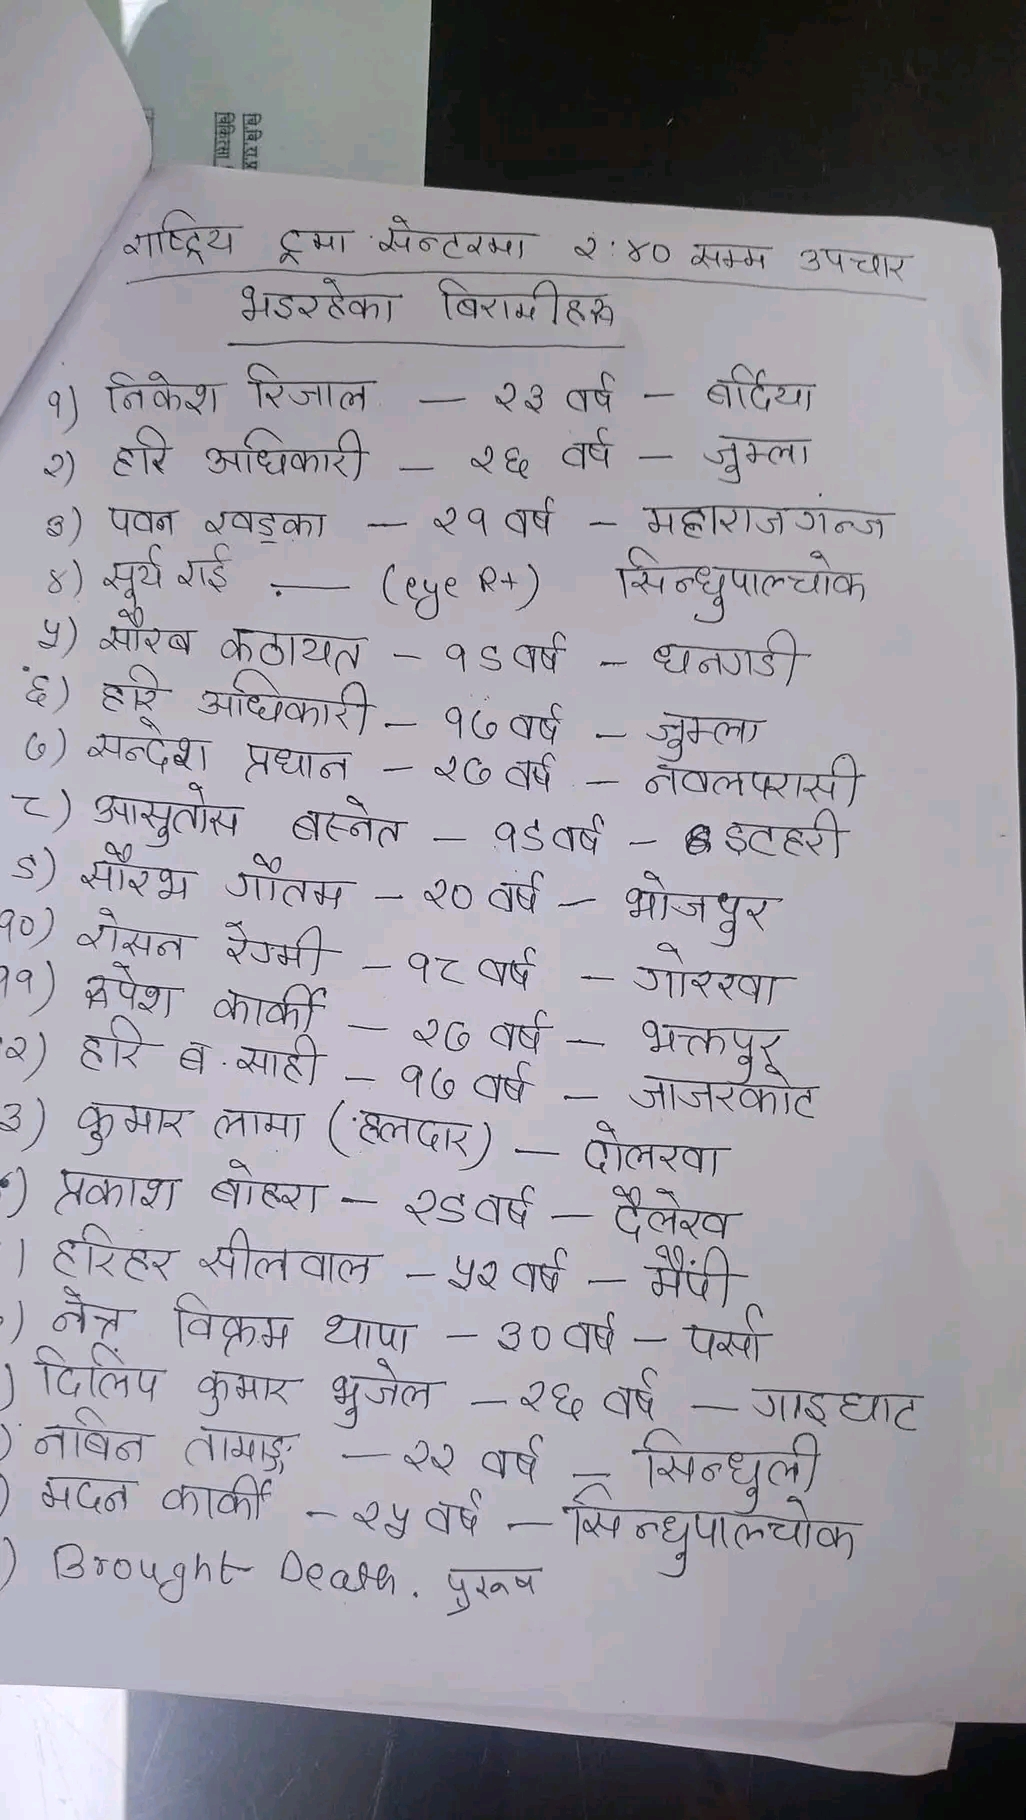 वि.वि.रा.प्र
चिकित्सा
राष्ट्रिय ट्रमा सेन्टरमा २:४० सम्म उपचार
भइरहेका बिरामीहरु
१) निकेश रिजाल - २३ वर्ष - बर्दिया
२) हरि अधिकारी - २६ वर्ष - जुम्ला
३) पवन खड्का - २१ वर्ष - महाराजगन्ज
४) सूर्य राई - (eye R+) सिन्धुपाल्चोक
५) सौरब कठायत - १९ वर्ष - धनगडी
६) हरि अधिकारी - १७ वर्ष - जुम्ला
७) सन्देश प्रधान - २७ वर्ष - नवलपरासी
८) आसुतोस बस्नेत - १९ वर्ष - इटहरी
९) सौरभ गौतम - २० वर्ष - भोजपुर
१०) रोसन रेग्मी - १८ वर्ष - गोरखा
११) रुपेश कार्की - २७ वर्ष - भक्तपुर
२) हरि ब. साही - १७ वर्ष - जाजरकोट
३) कुमार लामा (हलदार) - दोलखा
) प्रकाश बोहरा - २९ वर्ष - दैलेख
) हरिहर सीलवाल - ५२ वर्ष - मैंपी
) नेत्र विक्रम थापा - ३० वर्ष - पर्सा
) दिलिप कुमार भुजेल - २६ वर्ष - गाइघाट
) नबिन तामाङ्ग - २२ वर्ष - सिन्धुली
) मदन कार्की - २५ वर्ष - सिन्धुपाल्चोक
) Brought Death. पुरुष